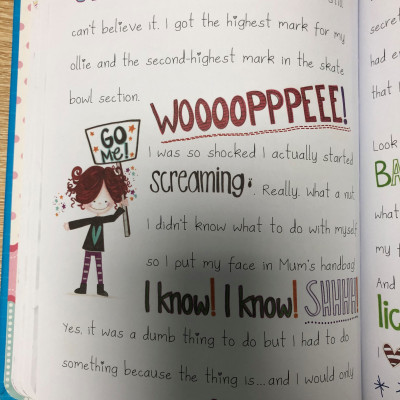 can't believe it. I got the highest mark for my
ollie and the second-highest mark in the skate
bowl section.
WOOOOPPPEEE!
GO
Me!
I was so shocked I actually started
screaming. Really. What a nut.
I didn't know what to do with myself
so I put my face in Mum's handbag!
I know! I know! SHHHH!
Yes, it was a dumb thing to do but I had to do
something because the thing is... and I would only
secret
had
eve
that I
Look
BA
what
my f
And
lic
I